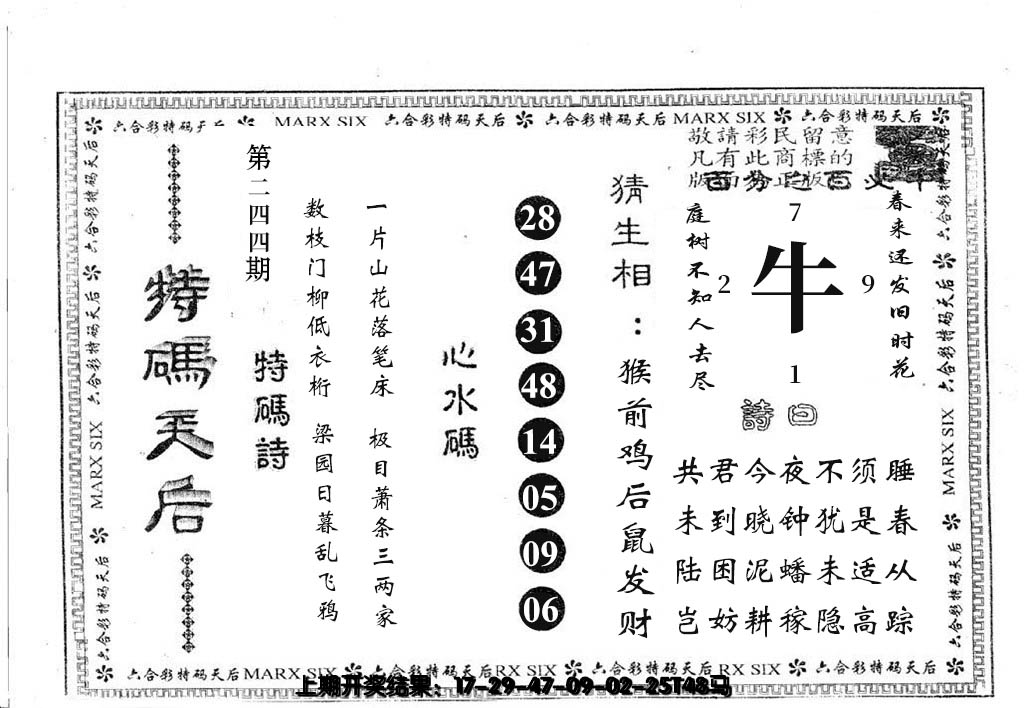 六合彩特码天后 MARX SIX 六合彩特码天后 六合彩特码天后 MARX SIX 六合彩特码天后
六合彩特码天后 六合彩特码天后 MARX SIX 六合彩特码天后
特碼天后
第二四四期
特碼詩
数枝门柳低衣桁 梁园日暮乱飞鸦
一片山花落笔床 极目萧条三两家
心水碼
28
47
31
48
14
05
09
06
猜生相：猴前鸡后鼠发财
敬請彩民留意
凡有此商標的
庭树不知人去尽
7
2 牛 9
1
春来还发旧时花
詩曰
共君今夜不须睡
未到晓钟犹是春
陆困泥蟠未适从
岂妨耕稼隐高踪
六合彩特码天后 六合彩特码天后 MARX SIX 六合彩特码天后
六合彩特码天后 MARX SIX 六合彩特码天后 RX SIX 六合彩特码天后 RX SIX 六合彩特码天后
上期开奖结果：17-29-47-09-02-25T48马